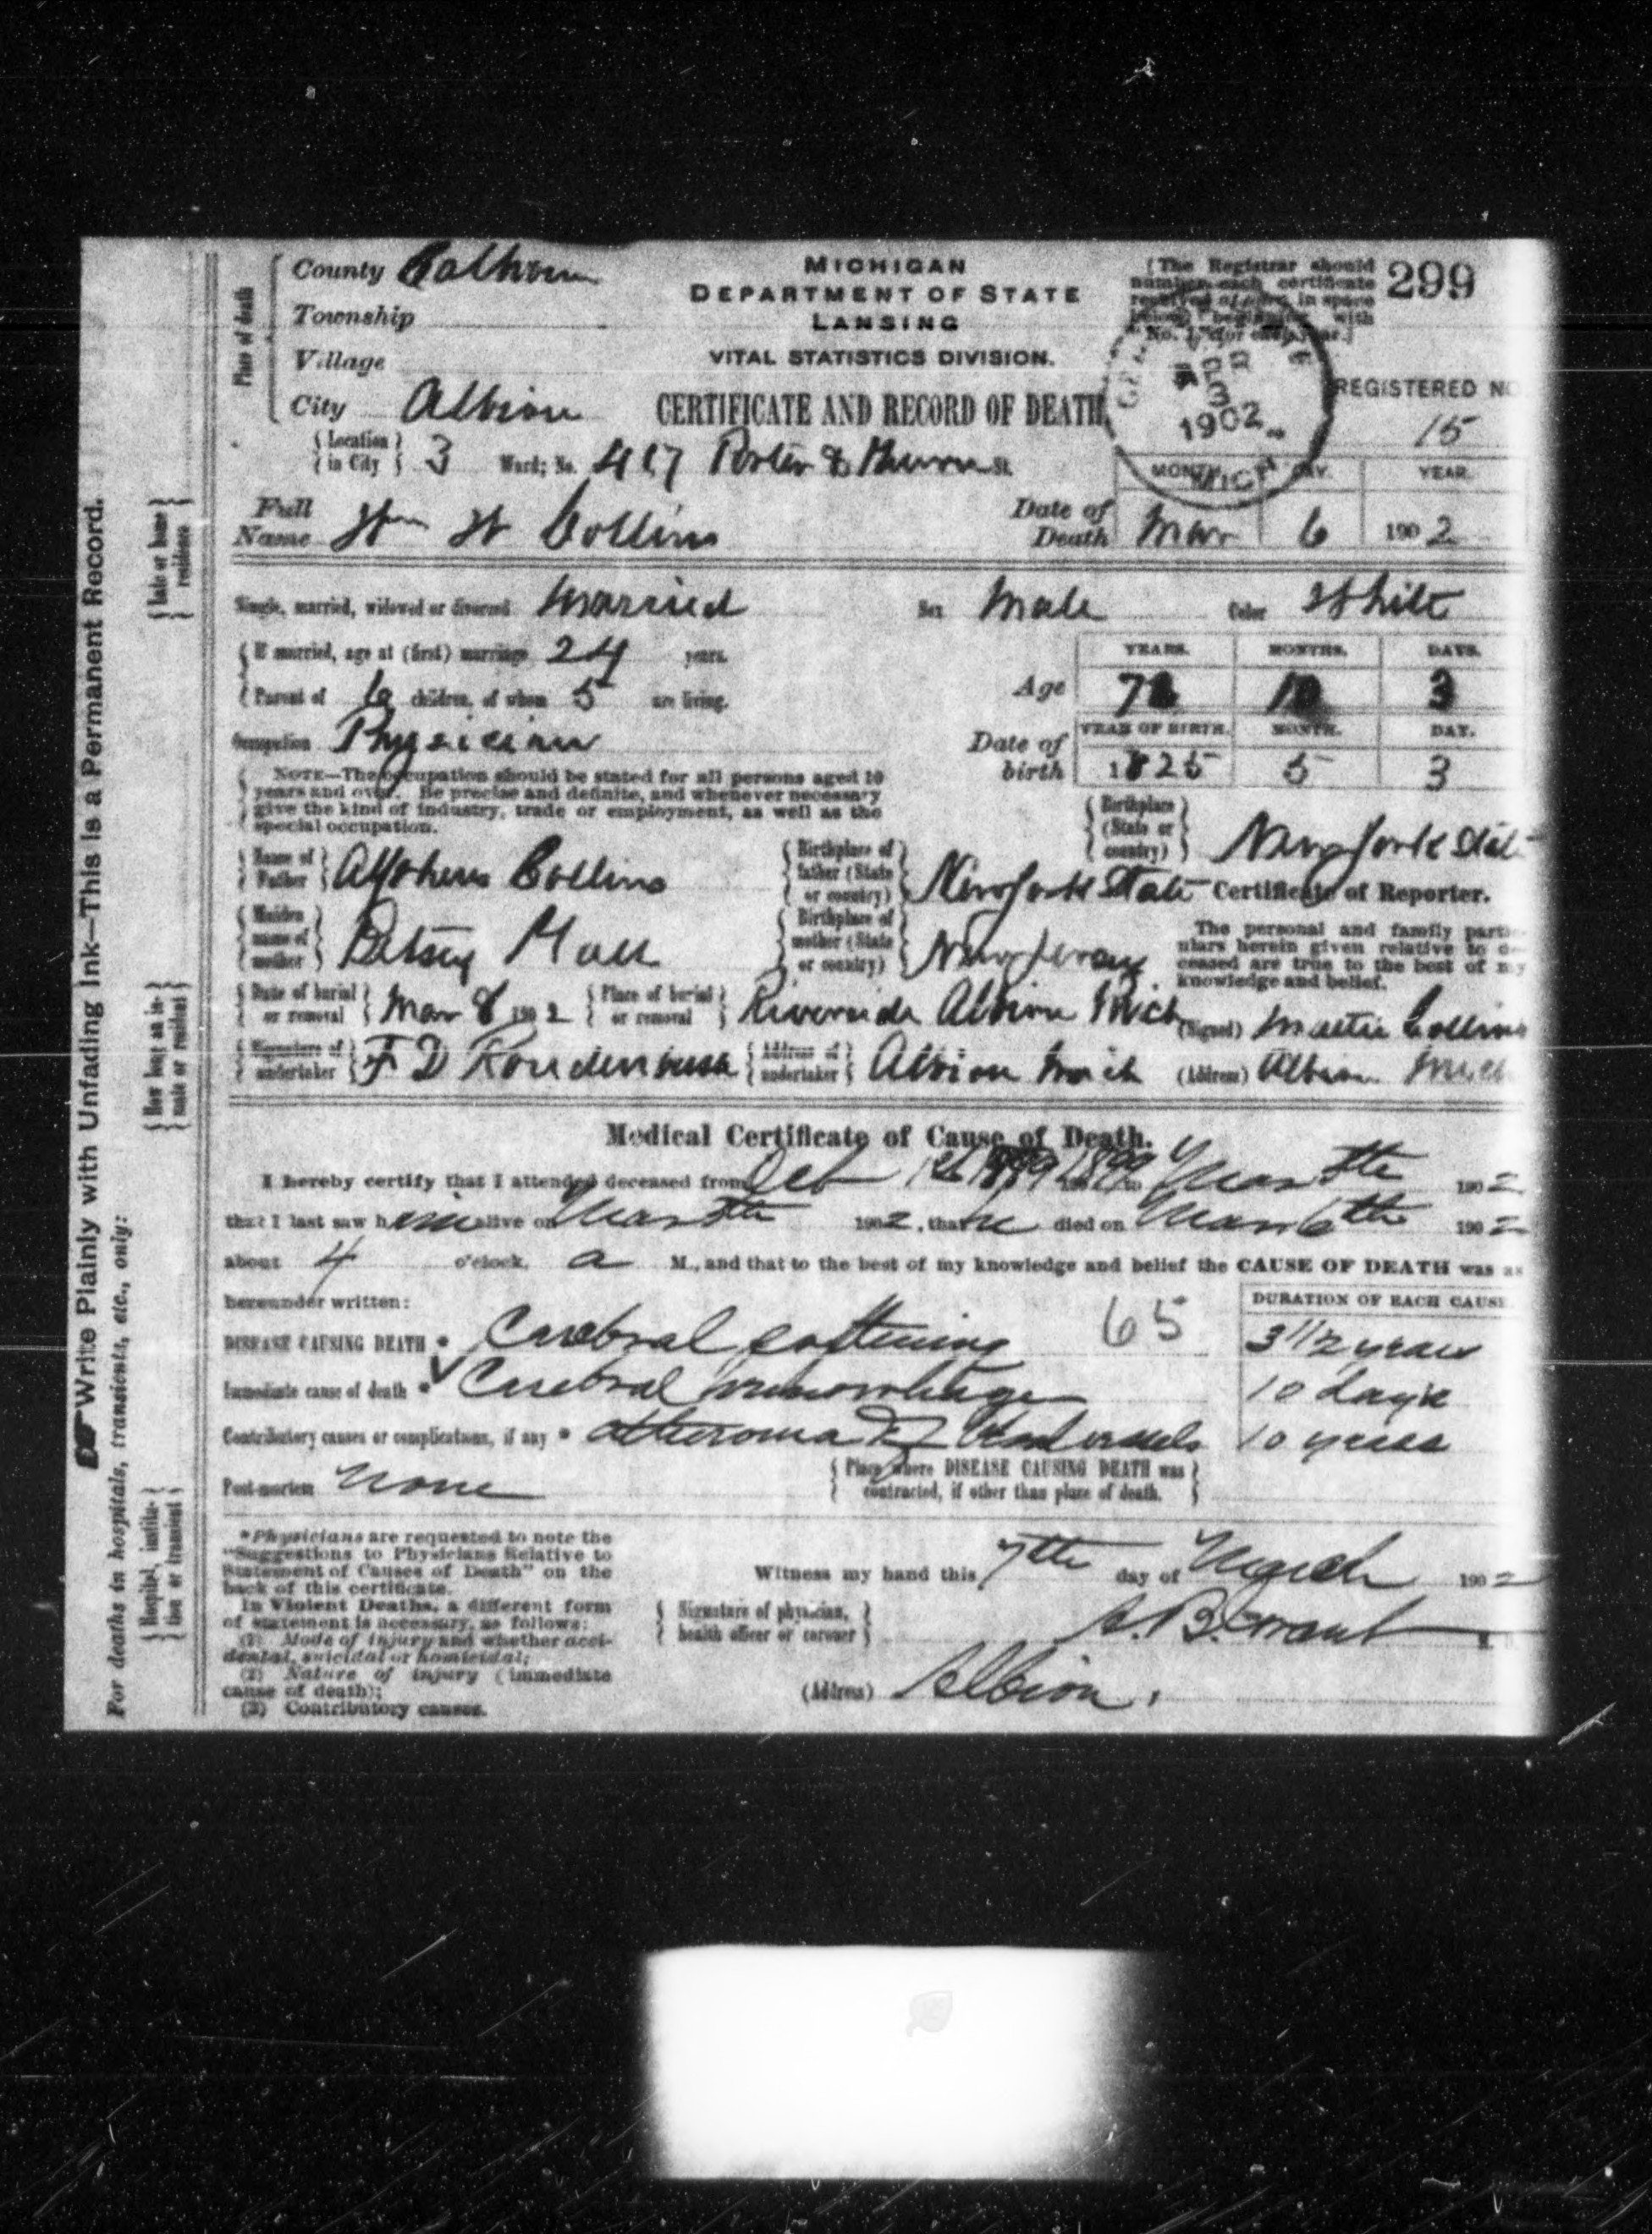 County Calhoun
Township
Village
City Albion
Place of death
MICHIGAN
DEPARTMENT OF STATE
LANSING
VITAL STATISTICS DIVISION.
CERTIFICATE AND RECORD OF DEATH
The Registrar should
number each certificate
received in space
with
"No. 1" for each year.
299
APR 3
1902
MICH
REGISTERED NO
15
Location in City 3 Ward; No. 417 Porter St.
Full Name Wm W Collins
Date of Death
MONTH DAY. YEAR.
Mar 6 1902
Single, married, widowed or divorced married Sex Male Color White
If married, age at (first) marriage 24 years.
Parent of 6 children, of whom 5 are living.
Age
YEARS. MONTHS. DAYS.
10 3
Occupation Physician
Date of birth
YEAR OF BIRTH. MONTH. DAY.
1825 5 3
NOTE—The occupation should be stated for all persons aged 10
years and over. Be precise and definite, and whenever necessary
give the kind of industry, trade or employment, as well as the
special occupation.
Birthplace (State or country) New York State
Name of Father Alpheus Collins
Birthplace of father (State or country) New York State
Certificate of Reporter.
Maiden name of mother Betsey
Birthplace of mother (State or country) New Jersey
The personal and family parti
ulars herein given relative to de
ceased are true to the best of my
knowledge and belief.
Date of burial or removal Mar 8 1902 Place of burial or removal Riverside Albion Mich
(Signed) Mattie Collins
Signature of undertaker F D Roudenbush Address of undertaker Albion Mich (Address) Albion Mich
Medical Certificate of Cause of Death.
I hereby certify that I attended deceased from Oct 1st 1899 to Mar 5th 1902
that I last saw him alive on Mar 5th 1902, that he died on Mar 6th 1902
about 4 o'clock, a M., and that to the best of my knowledge and belief the CAUSE OF DEATH was as
hereunder written:
DURATION OF EACH CAUSE
DISEASE CAUSING DEATH * Cerebral softening 65 3 1/2 years
Immediate cause of death * Cerebral hemorrhage 10 days
Contributory causes or complications, if any * Atheroma of blood vessels 10 years
Post-mortem None
Place where DISEASE CAUSING DEATH was
contracted, if other than place of death.
*Physicians are requested to note the
"Suggestions to Physicians Relative to
Statement of Causes of Death" on the
back of this certificate.
In Violent Deaths, a different form
of statement is necessary, as follows:
(1) Mode of injury and whether acci-
dental, suicidal or homicidal;
(2) Nature of injury (immediate
cause of death);
(3) Contributory causes.
Witness my hand this 7th day of March 1902
Signature of physician, health officer or coroner
Grant M. D.
(Address) Albion.
Write Plainly with Unfading Ink—This is a Permanent Record.
For deaths in hospitals, transients, etc., only:
Late or home residence
How long an in-
mate or resident
Hospital, institu-
tion or transient